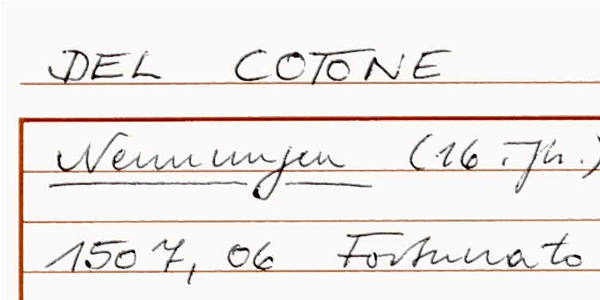 DEL COTONE
Nennungen (16. Jh.)
1507, 06 Fortunato